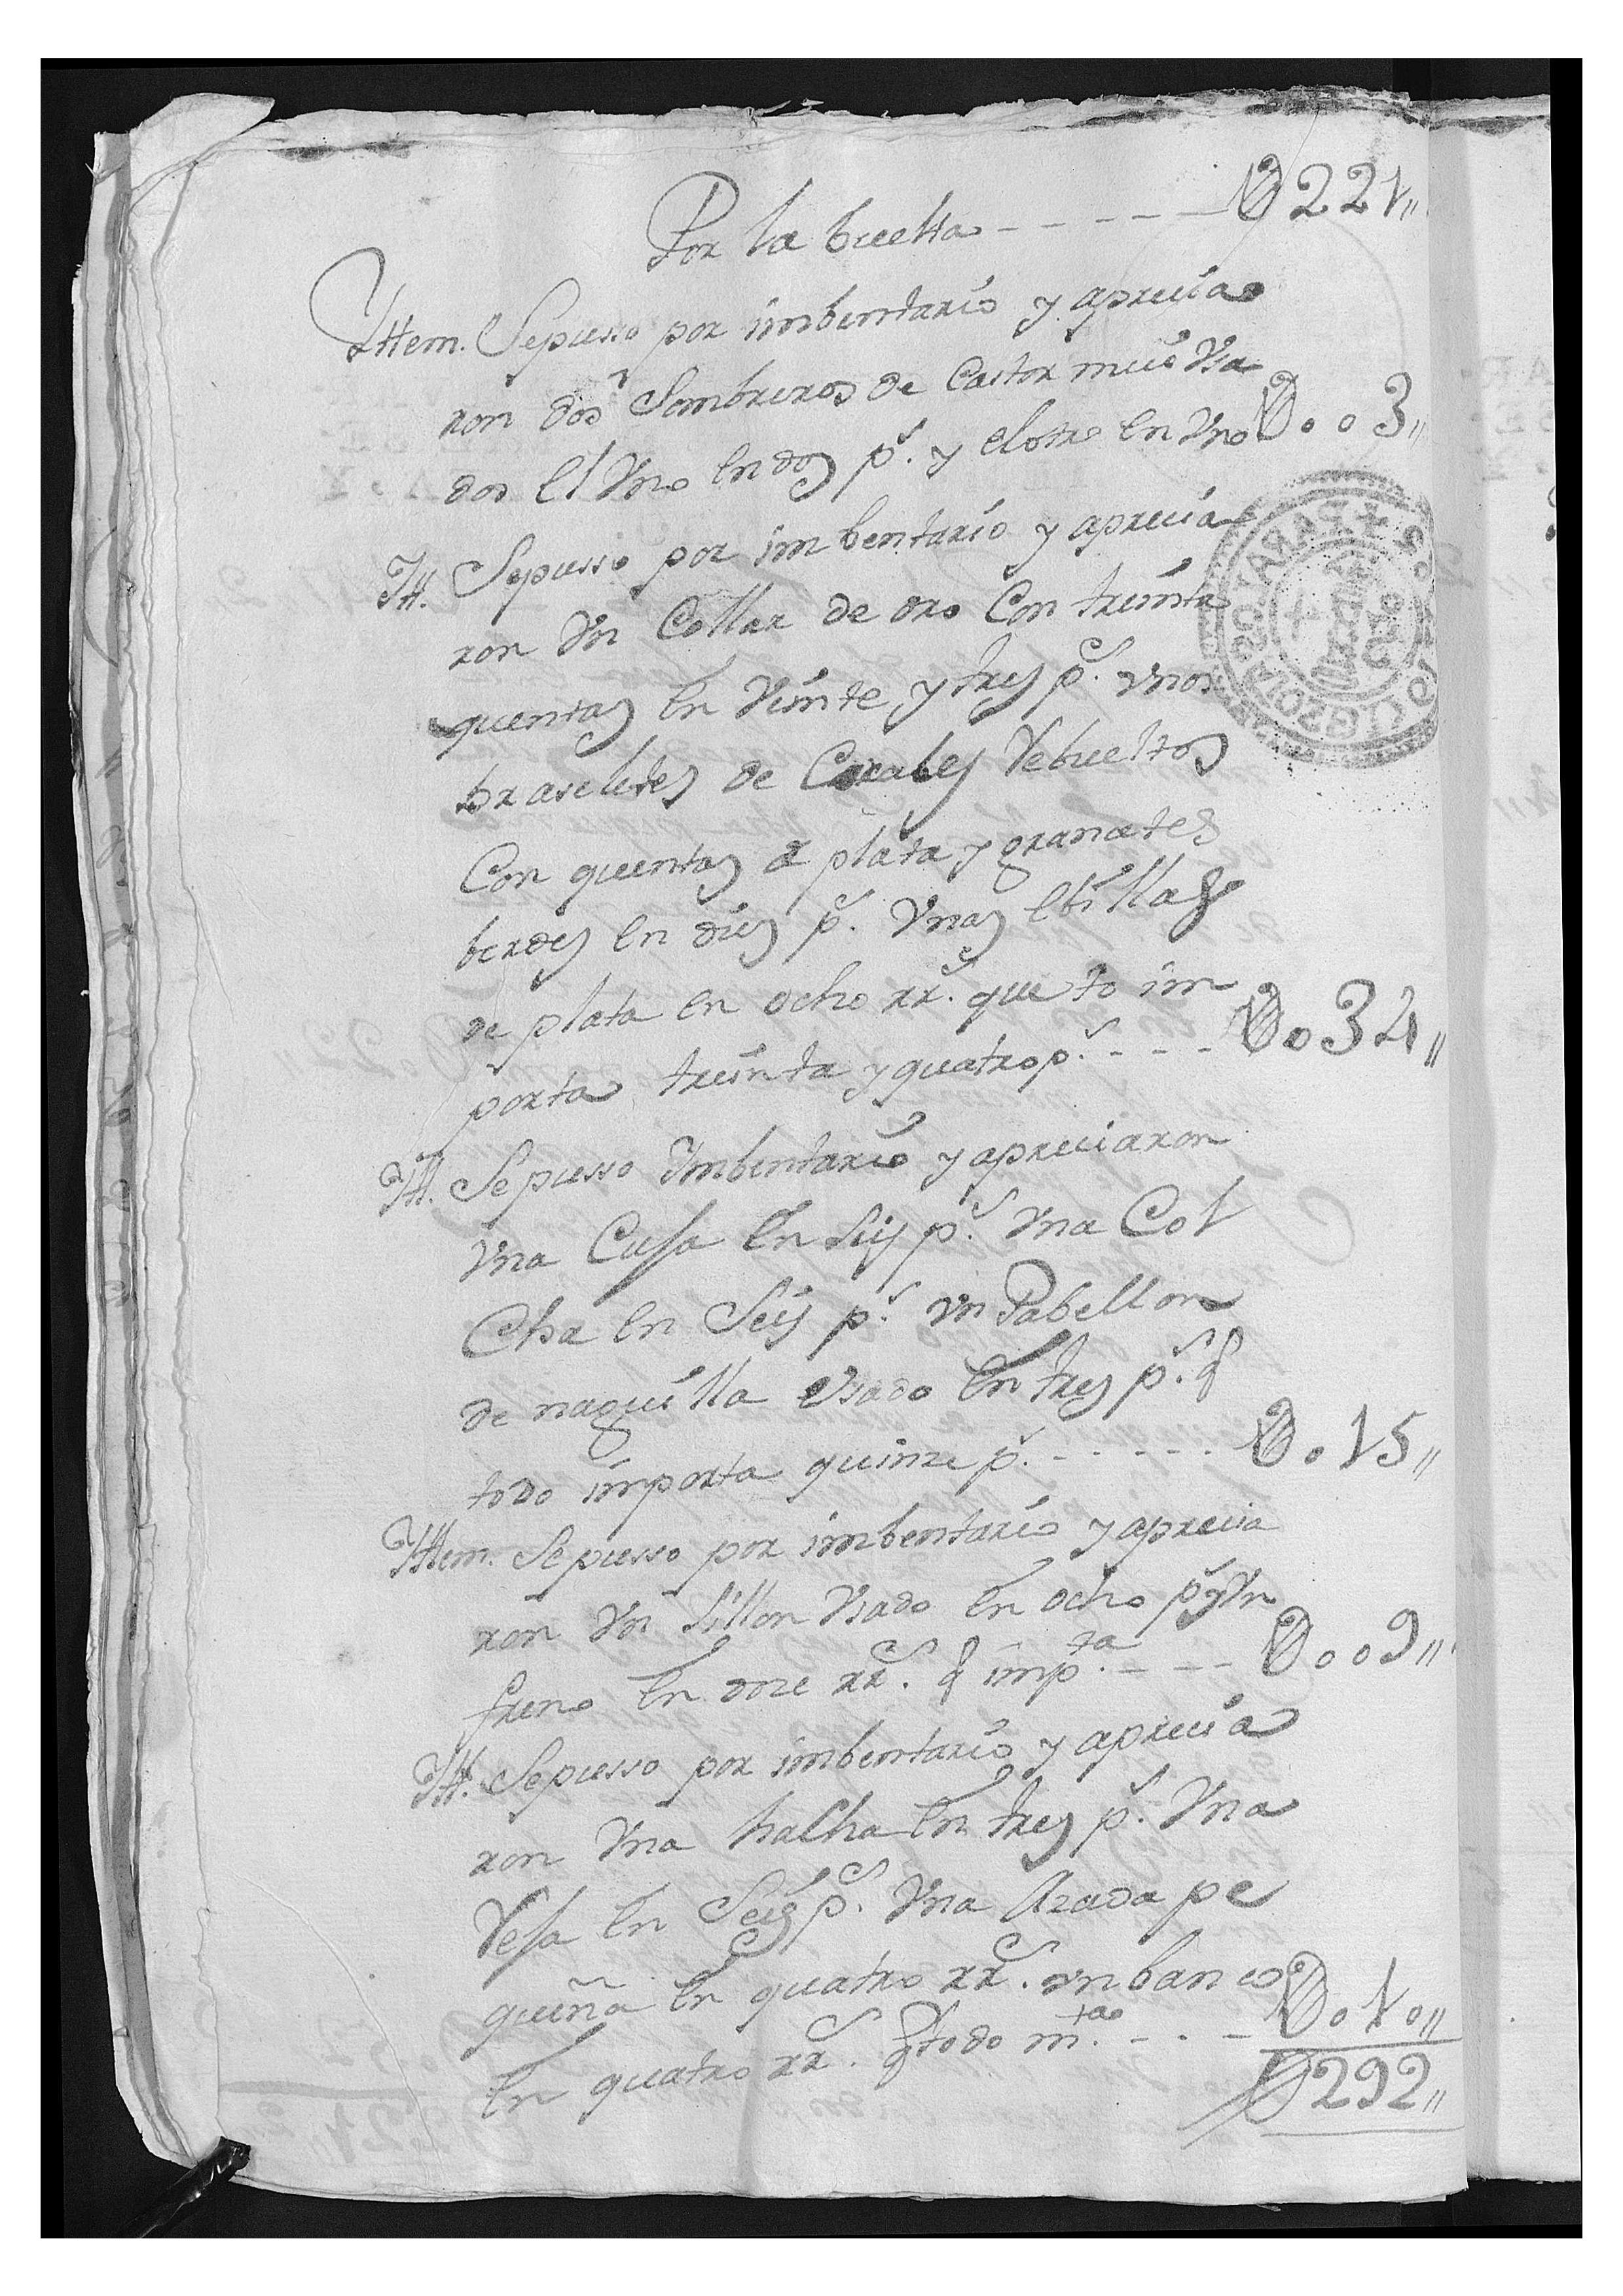 Por la buelta - - - - - U221,,
Yttem. Sepusso por imbentario y aprecia
ron dos Sombreros de Castor mui Vsa
dos El Vno en dos ps. y elotro en Vno U003,,
Ytt. Sepusso por imbentario y aprecia
ron Vn Collar de oro Con treinta
quentas en Veinte y tres ps. Vnos
braseletes de Corales Rebueltos
Con quentas de plata y granates
berdes en dies ps. Vnas ebillas
de plata en ocho rrs. que to im
porta treinta y quatro ps. - - - U034,,
Ytt. Sepusso Imbentario y apreciaron
Vna Caja en Seis ps. Vna Col
Cha en Seis ps. vn Pabellon
de naguilla Vsado en tres ps. q
todo importa quinze ps. - - - - - U015,,
Yttem. Sepusso por imbentario y aprecia
ron Vn Sillon Vsado en ocho ps y Vn
freno en doze rrs. q impta. - - - U009,,
Ytt. Sepusso por imbentario y aprecia
ron Vna hacha en tres ps. Vna
Reja en Seis ps. Vna Azada pe
queña en quatro rrs. vn banco
en quatro rrs. q todo mta. - - - U010,,
U292,,